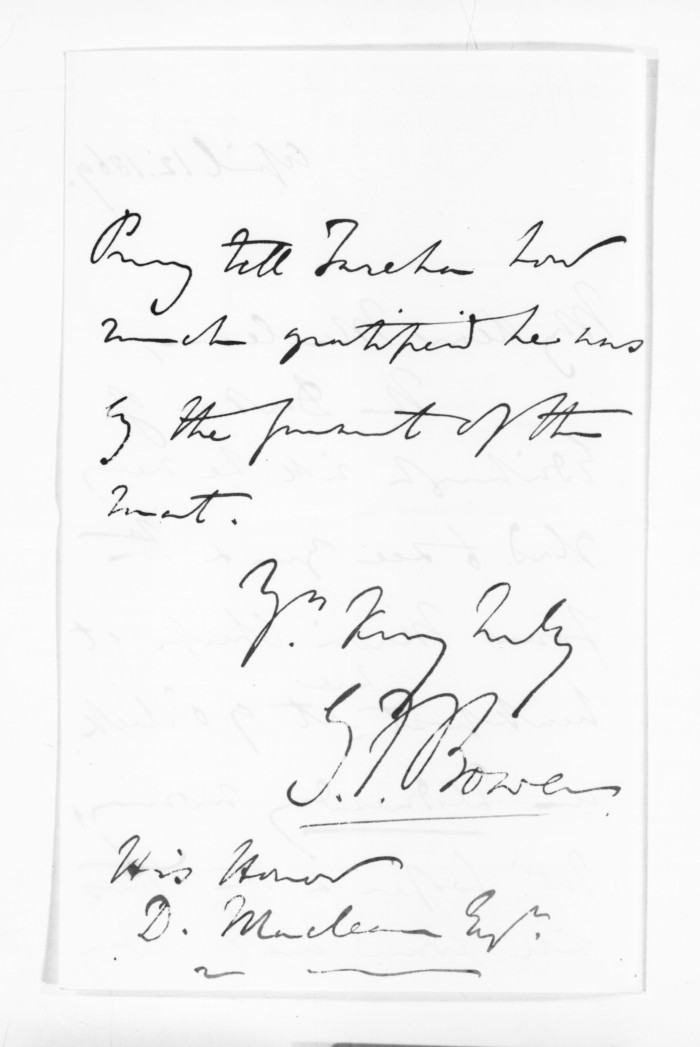 Pray tell Tareha how
much gratified he was
by the present of the
mat.
Yrs. very truly
G. F. Bowen.
His Honor
D. Maclean Esqr.